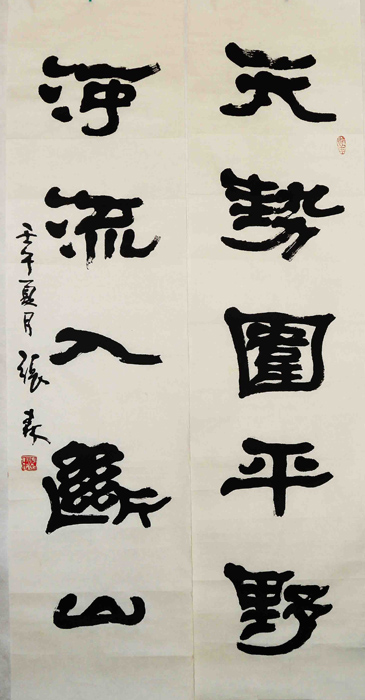 天勢圍平野
河流入斷山
壬午夏月張森